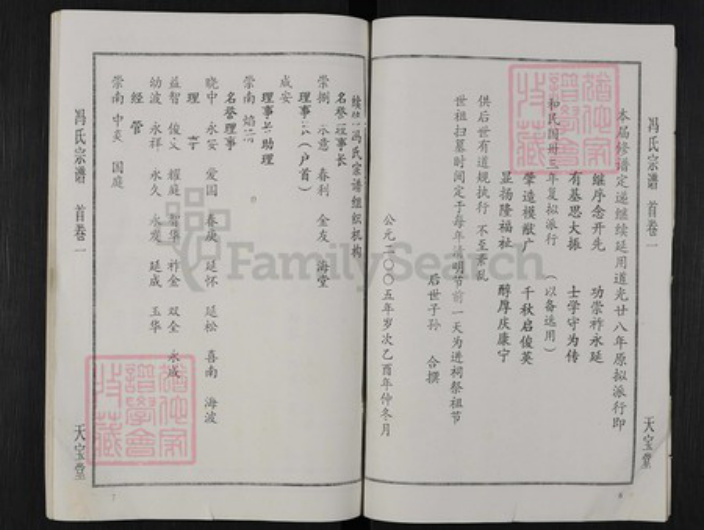 冯氏宗谱 首卷一
天宝堂
本届修谱定递继续延用道光廿八年原拟派行即
继序念开先 功崇祚永延
有基思大振 士学守为传
和民国卅三年复拟派行 (以备选用)
肇造模猷广 千秋启俊英
显扬隆福祉 醇厚庆康宁
供后世有道规执行 不至紊乱
世祖扫墓时间定于每年清明节前一天为进祠祭祖节
后世子孙 合撰
公元二00五年岁次乙酉年仲冬月
冯氏宗谱组织机构
名誉理事长
崇捌 示意 春利 金友 海堂
理事长(户首)
成安
理事长助理
崇南 焰
名誉理事
晓中 永安 爱国 春庚 延怀 延松 喜南 海波
理
益智 俊义 耀庭 智华 祚金 双全 永成
幼波 永祥 永久 永发 延成 玉华
经管
崇南 中奕 国庭
冯氏宗谱 首卷一
天宝堂
FamilySearch